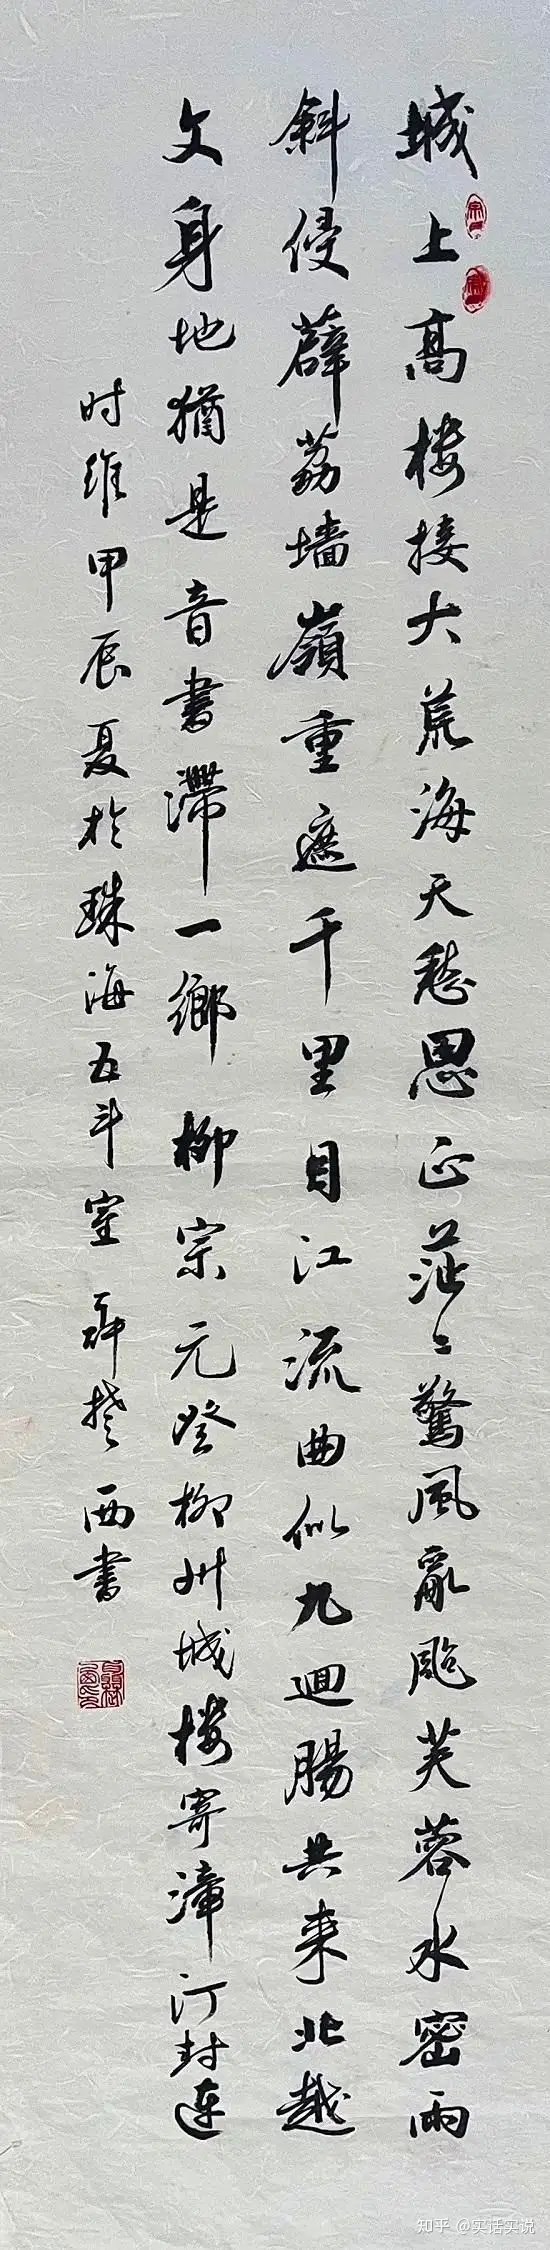 城上高楼接大荒海天愁思正茫〻驚風亂颭芙蓉水密雨
斜侵薜荔墙嶺重遮千里目江流曲似九迴腸共来北越
文身地猶是音書滯一鄉 柳宗元登柳州城楼寄漳汀封連
时维甲辰夏於珠海五斗室 楚西書
知乎 @实话实说